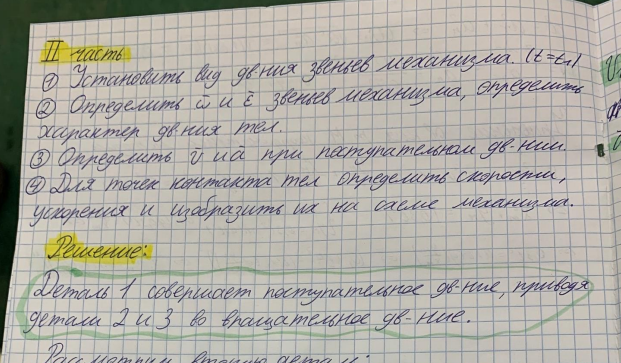 II часть
① Установить вид дв-ния звеньев механизма. (t=t₁)
② Определить ω̄ и ε̄ звеньев механизма, определить
характер дв-ния тел.
③ Определить v̄ и ā при поступательном дв-нии.
④ Для точек контакта тел определить скорости,
ускорения и изобразить их на схеме механизма.
Решение:
Деталь 1 совершает поступательное дв-ние, приводя
детали 2 и 3 во вращательное дв-ние.
Рассмотрим вторую деталь: